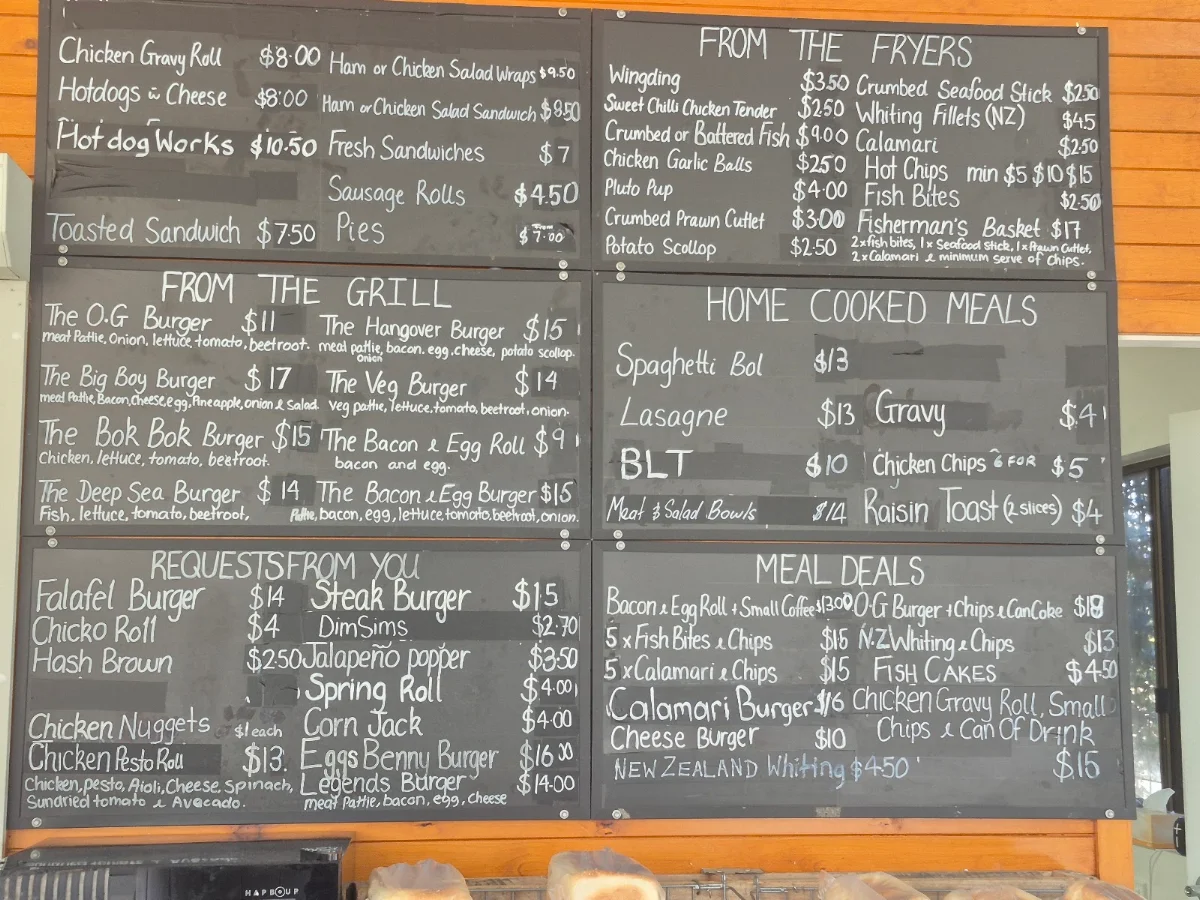 Chicken Gravy Roll $8.00
Hotdogs w Cheese $8.00
Hot dog Works $10.50
Toasted Sandwich $7.50
Ham or Chicken Salad Wraps $9.50
Ham or Chicken Salad Sandwich $8.50
Fresh Sandwiches $7
Sausage Rolls $4.50
Pies From $7.00
FROM THE FRYERS
Wingding $3.50
Sweet Chilli Chicken Tender $2.50
Crumbed or Battered Fish $9.00
Chicken Garlic Balls $2.50
Pluto Pup $4.00
Crumbed Prawn Cutlet $3.00
Potato Scollop $2.50
Crumbed Seafood Stick $2.50
Whiting Fillets (NZ) $4.5
Calamari $2.50
Hot Chips min $5 $10 $15
Fish Bites $2.50
Fisherman's Basket $17
2x fish bites, 1x Seafood Stick, 1x Prawn Cutlet,
2x Calamari & minimum serve of chips.
FROM THE GRILL
The O.G Burger $11
meat Pattie, Onion, lettuce, tomato, beetroot.
The Big Boy Burger $17
meat Pattie, Bacon, Cheese, egg, Pineapple, onion & Salad.
The Bok Bok Burger $15
Chicken, lettuce, tomato, beetroot.
The Deep Sea Burger $14
Fish, lettuce, tomato, beetroot,
The Hangover Burger $15
meat pattie, bacon, egg, cheese, potato scollop.
onion
The Veg Burger $14
Veg pattie, lettuce, tomato, beetroot, onion.
The Bacon & Egg Roll $9
bacon and egg.
The Bacon & Egg Burger $15
Pattie, bacon, egg, lettuce, tomato, beetroot, onion.
HOME COOKED MEALS
Spaghetti Bol $13
Lasagne $13
BLT $10
Meat & Salad Bowls $14
Gravy $4
Chicken Chips 6 FOR $5
Raisin Toast (2 slices) $4
REQUESTS FROM YOU
Falafel Burger $14
Chicko Roll $4
Hash Brown $2.50
Chicken Nuggets $1 each
Chicken Pesto Roll $13.
Chicken, pesto, Aioli, Cheese, Spinach,
Sundried tomato & Avocado.
Steak Burger $15
DimSims $2.70
Jalapeño popper $3.50
Spring Roll $4.00
Corn Jack $4.00
Eggs Benny Burger $16.00
Legends Burger $14.00
meat Pattie, bacon, egg, cheese
MEAL DEALS
Bacon & Egg Roll + Small Coffee $13.00
5 x Fish Bites & Chips $15
5 x Calamari & Chips $15
Calamari Burger $16
Cheese Burger $10
NEW ZEALAND Whiting $4.50
O-G Burger + Chips & Can Coke $18
N.Z Whiting & Chips $13
FISH CAKES $4.50
Chicken Gravy Roll, Small
Chips & Can Of Drink
$15